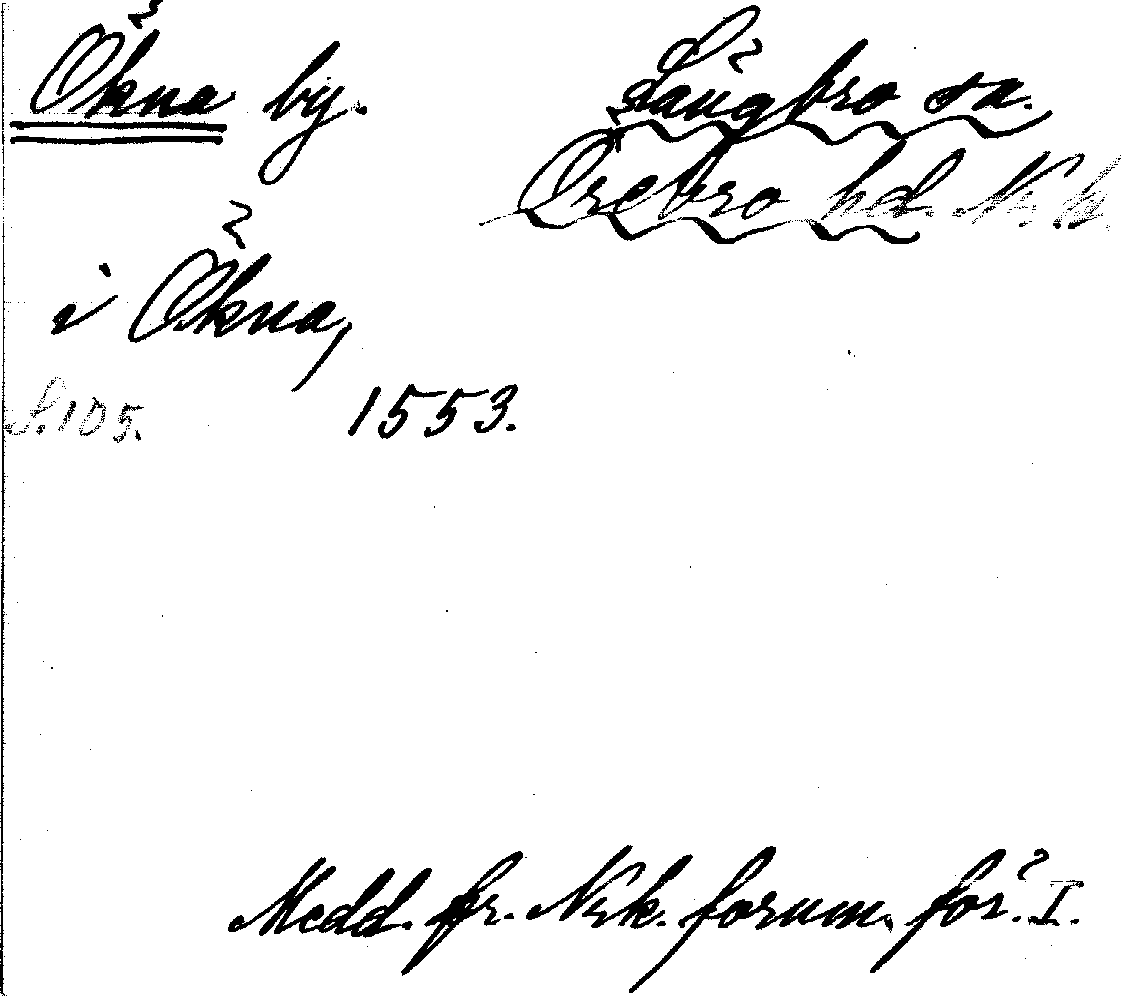 Ökna by. Längbro sn.
Örebro hd. Nrk.
i Ökna,
S. 105. 1553.
Medd. fr. Nrk. fornm. för. I.